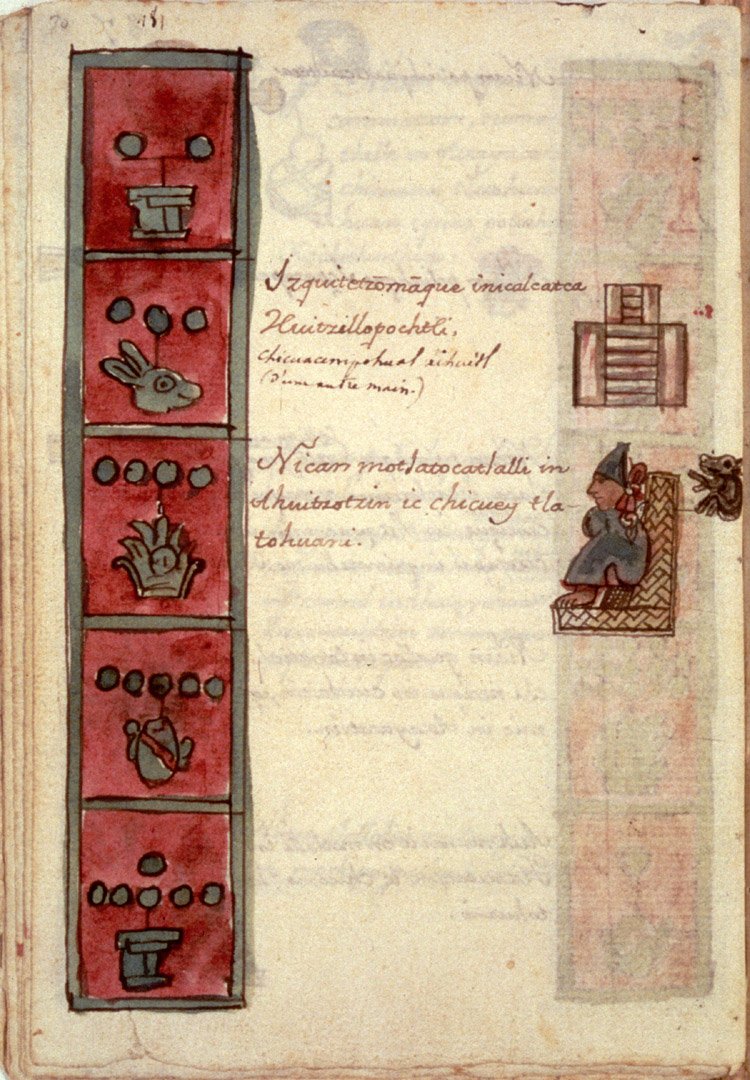 181
Izquitetzomāque inicalcatca
Huitzillopochtli.
chicuacempohual eihuitl
(d'une autre main.)
Nican motlatocatlalli in
Ahuitzotzin ic chicuey tla-
tohuani.